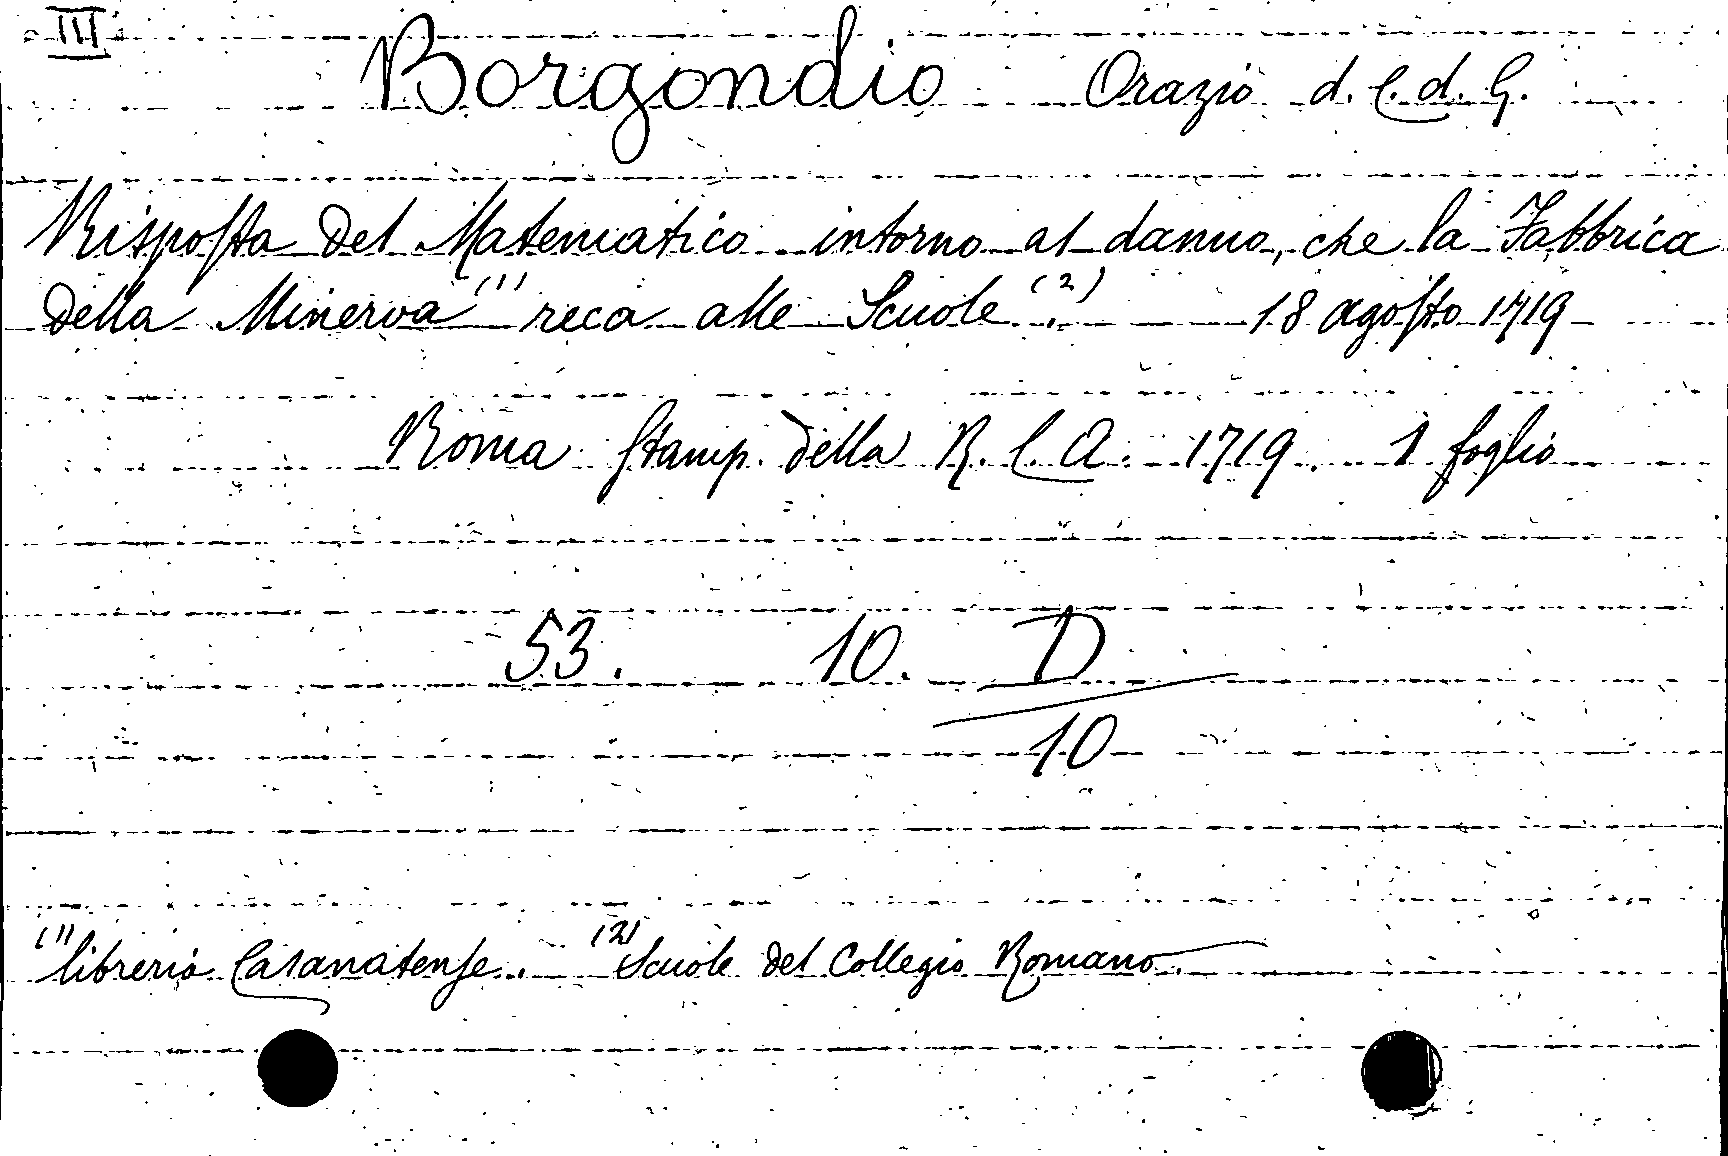 III
Borgondio Orazio d. C. d. G.
Risposta del Matematico intorno al danno, che la Fabbrica
della Minerva (1) reca alle Scuole (2). 18 agosto 1719
Roma Stamp. della R. C. A. 1719. 1 foglio
53. 10. D
10
(1) libreria Casanatense. (2) Scuole del Collegio Romano.